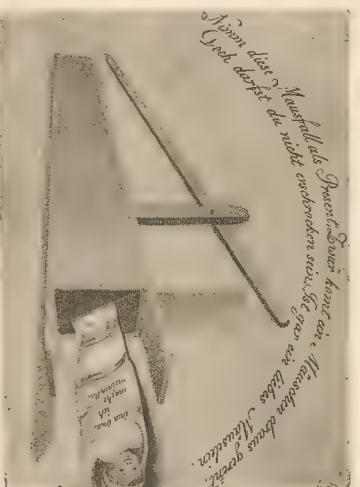 Nimm diese Mausfall als Present, Zwar komt ein Mäuschen draus gerent,
Doch darfst du nicht erschrocken sein, Ist gar ein liebs Mäuselein.
macht
ich